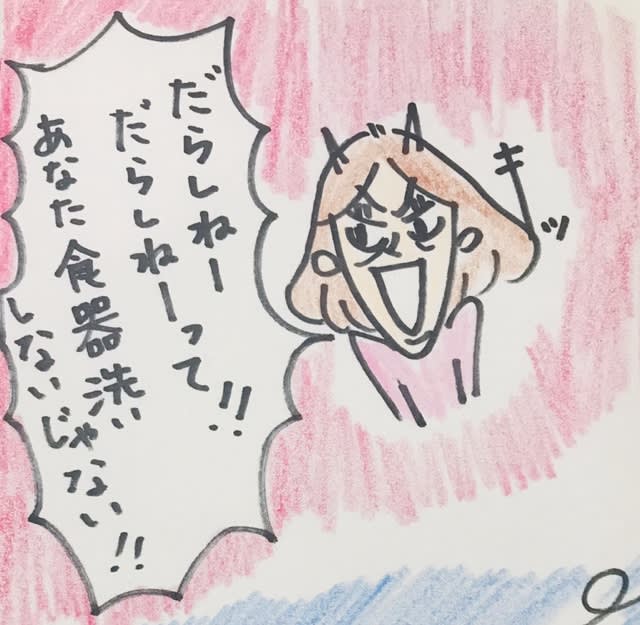 だらしねー
だらしねーって!!
あなた食器洗い
しないじゃない!!
キッ